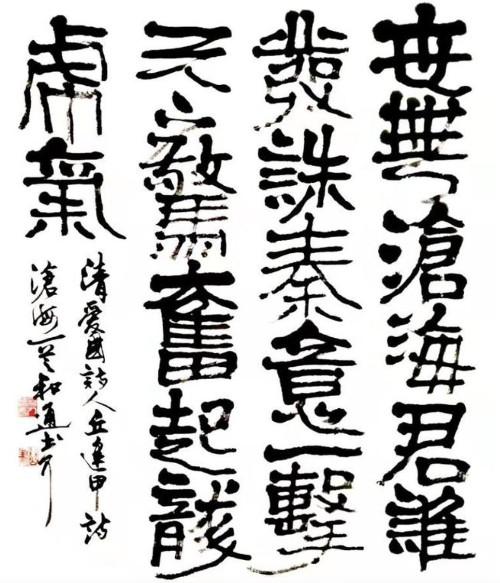 世無滄海君誰
發誅秦意一擊
天下驚奮起龍
虎氣
清愛國詩人丘逢甲詩
滄海 和通書